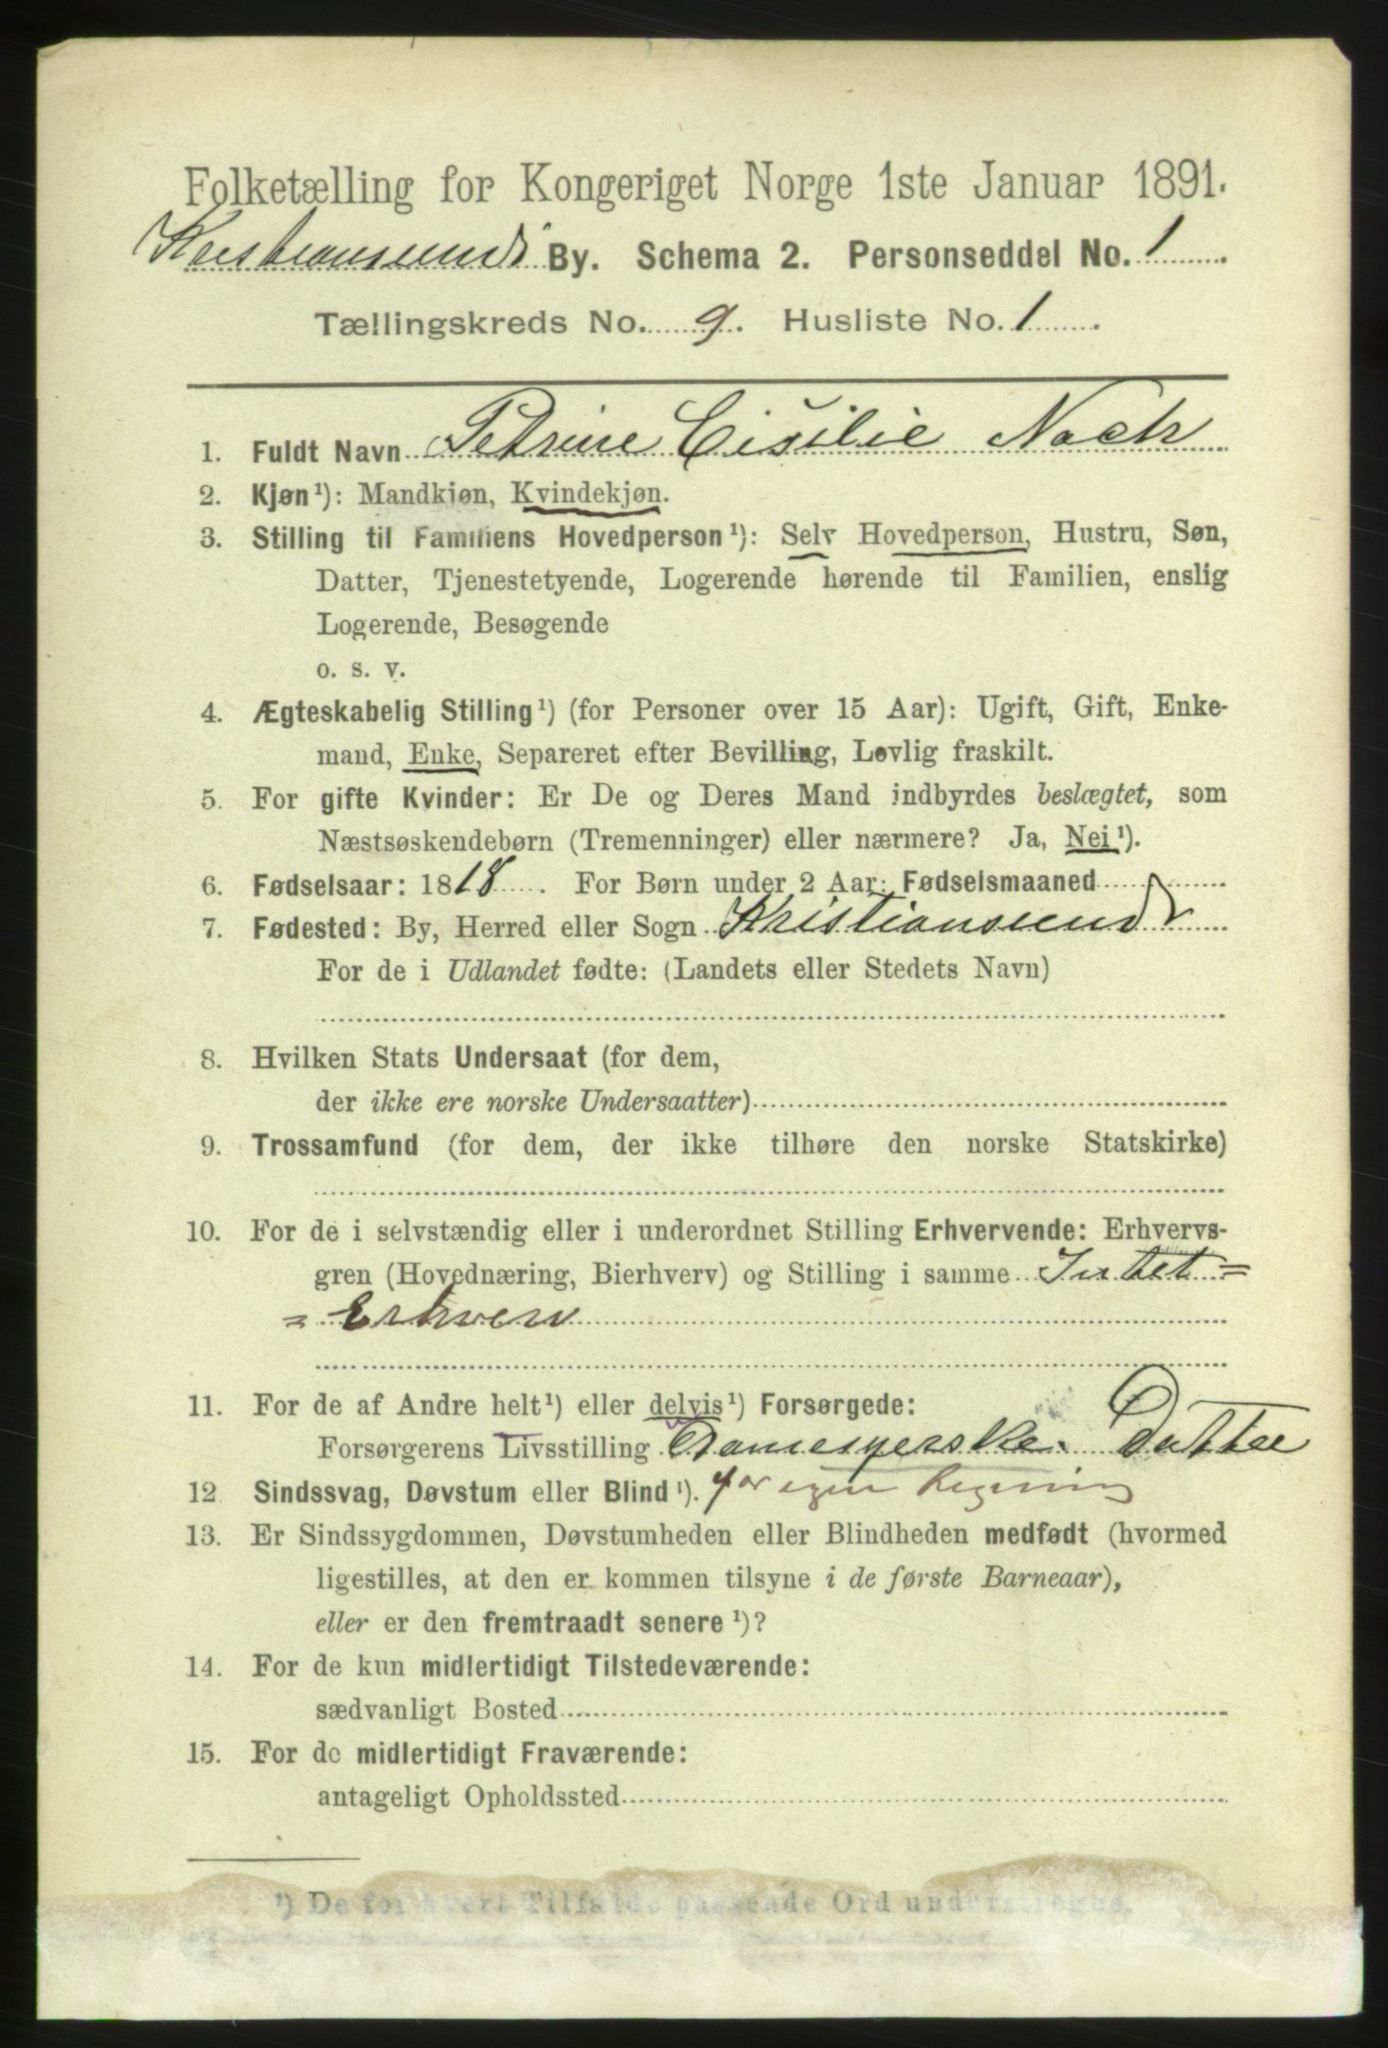 Folketælling for Kongeriget Norge 1ste Januar 1891.
Kristianssund By. Schema 2. Personseddel No. 1
Tællingskreds No. 9. Husliste No. 1
1. Fuldt Navn Petrine Cisilie
2. Kjøn¹): Mandkjøn, Kvindekjøn.
3. Stilling til Familiens Hovedperson¹): Selv Hovedperson, Hustru, Søn,
Datter, Tjenestetyende, Logerende hørende til Familien, enslig
Logerende, Besøgende
o. s. v.
4. Ægteskabelig Stilling¹) (for Personer over 15 Aar): Ugift, Gift, Enke-
mand, Enke, Separeret efter Bevilling, Lovlig fraskilt.
5. For gifte Kvinder: Er De og Deres Mand indbyrdes beslægtet, som
Næstsøskendebørn (Tremenninger) eller nærmere? Ja, Nei¹).
6. Fødselsaar: 1818. For Børn under 2 Aar: Fødselsmaaned
7. Fødested: By, Herred eller Sogn Kristianssund
For de i Udlandet fødte: (Landets eller Stedets Navn)
8. Hvilken Stats Undersaat (for dem,
der ikke ere norske Undersaatter)
9. Trossamfund (for dem, der ikke tilhøre den norske Statskirke)
10. For de i selvstændig eller i underordnet Stilling Erhvervende: Erhvervs-
gren (Hovednæring, Bierhverv) og Stilling i samme Intet =
= Erhverv
11. For de af Andre helt¹) eller delvis¹) Forsørgede:
Forsørgerens Livsstilling Damesyerske. Datter
12 Sindssvag, Døvstum eller Blind¹). for egen Regning
13. Er Sindssygdommen, Døvstumheden eller Blindheden medfødt (hvormed
ligestilles, at den er kommen tilsyne i de første Barneaar),
eller er den fremtraadt senere¹)?
14. For de kun midlertidigt Tilstedeværende:
sædvanligt Bosted
15. For de midlertidigt Fraværende:
antageligt Opholdssted
¹) De for hvert Tilfælde passende Ord understreges.